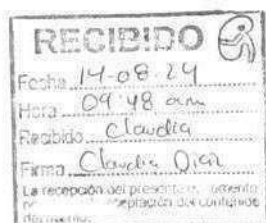 RECIBIDO
Fecha 14-08-24
Hora 09:48 am
Recibido Claudia
Firma Claudia Diaz
La recepción del presente
aceptación del contenido
del mismo.